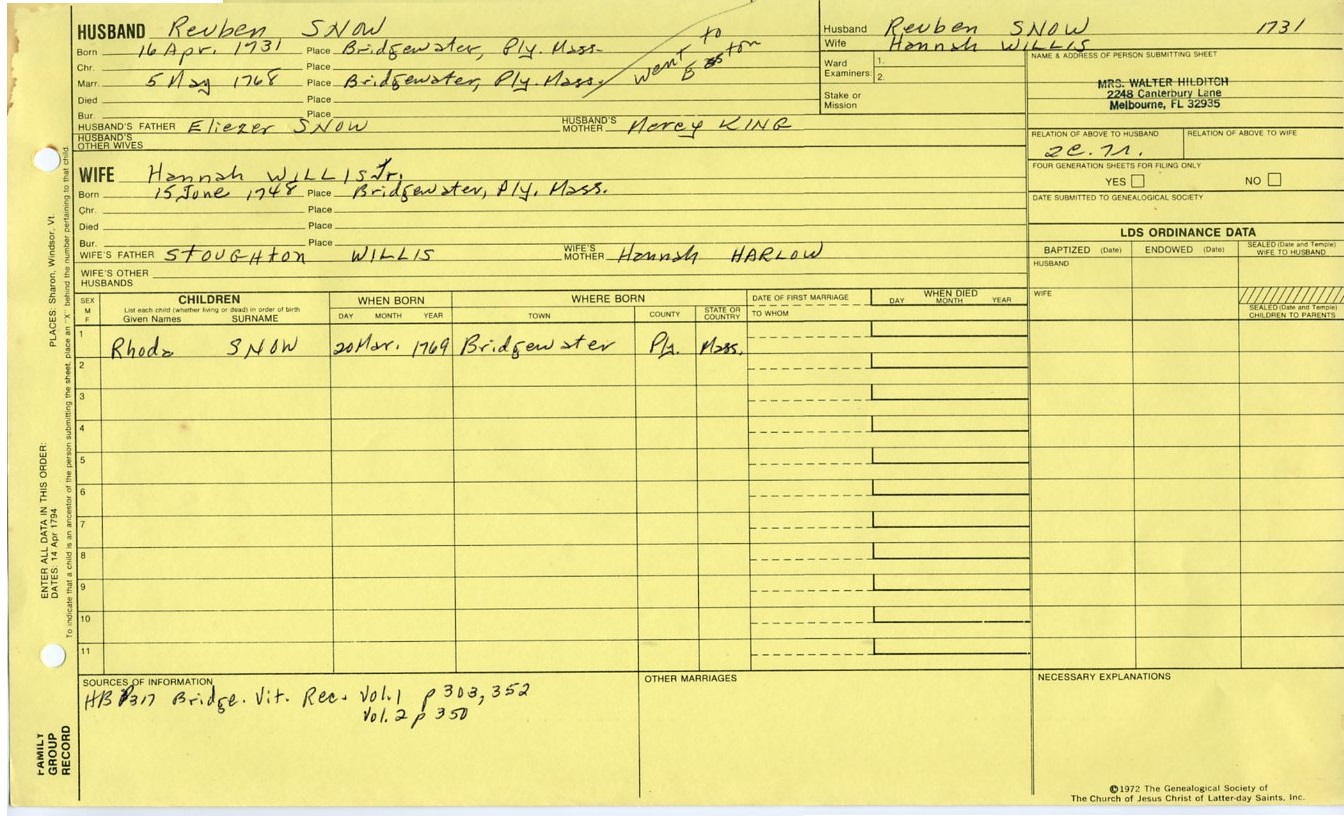 HUSBAND Reuben SNOW
Born 16 Apr. 1731 Place Bridgewater, Ply. Mass.
Chr. Place
Marr. 5 May 1768 Place Bridgewater, Ply. Mass.
went to Easton
Died Place
Bur. Place
HUSBAND'S FATHER Eliezer SNOW HUSBAND'S MOTHER Mercy KING
HUSBAND'S OTHER WIVES
WIFE Hannah WILLIS Jr.
Born 15 June 1748 Place Bridgewater, Ply. Mass.
Chr. Place
Died Place
Bur. Place
WIFE'S FATHER STOUGHTON WILLIS WIFE'S MOTHER Hannah HARLOW
WIFE'S OTHER HUSBANDS
Husband Reuben SNOW 1731
Wife Hannah WILLIS
Ward Examiners: 1. 2.
Stake or Mission
NAME & ADDRESS OF PERSON SUBMITTING SHEET
MRS. WALTER HILDITCH
2248 Canterbury Lane
Melbourne, FL 32935
RELATION OF ABOVE TO HUSBAND RELATION OF ABOVE TO WIFE
FOUR GENERATION SHEETS FOR FILING ONLY
YES NO
DATE SUBMITTED TO GENEALOGICAL SOCIETY
LDS ORDINANCE DATA
BAPTIZED (Date) ENDOWED (Date) SEALED (Date and Temple) WIFE TO HUSBAND
HUSBAND
WIFE
SEALED (Date and Temple) CHILDREN TO PARENTS
SEX M F
CHILDREN
List each child (whether living or dead) in order of birth
Given Names SURNAME
WHEN BORN
DAY MONTH YEAR
WHERE BORN
TOWN COUNTY STATE OR COUNTRY
DATE OF FIRST MARRIAGE
TO WHOM
WHEN DIED
DAY MONTH YEAR
1 Rhoda SNOW 20 Mar. 1769 Bridgewater Ply. Mass.
2
3
4
5
6
7
8
9
10
11
SOURCES OF INFORMATION
HB P317 Bridge. Vit. Rec. Vol. 1 p 303, 352
Vol. 2 p 350
OTHER MARRIAGES
NECESSARY EXPLANATIONS
©1972 The Genealogical Society of
The Church of Jesus Christ of Latter-day Saints, Inc.
FAMILY GROUP RECORD
ENTER ALL DATA IN THIS ORDER:
DATES: 14 Apr 1794
PLACES: Sharon, Windsor, Vt.
To indicate that a child is an ancestor of the person submitting the sheet, place an "X" behind the number pertaining to that child.